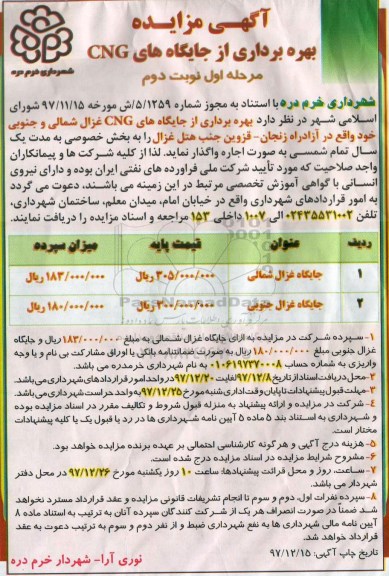 آگهی مزایده
بهره برداری از جایگاه های CNG
مرحله اول نوبت دوم
شهرداری خرم دره
شهرداری خرم دره با استناد به مجوز شماره ۵/۱۲۵۹/ش مورخه ۹۷/۱۱/۱۵ شورای
اسلامی شهر در نظر دارد بهره برداری از جایگاه های CNG غزال شمالی و جنوبی
خود واقع در آزادراه زنجان - قزوین جنب هتل غزال را به بخش خصوصی به مدت یک
سال تمام شمسی به صورت اجاره واگذار نماید. لذا از کلیه شرکت ها و پیمانکاران
واجد صلاحیت که مورد تأیید شرکت ملی فرآورده های نفتی ایران بوده و دارای نیروی
انسانی با گواهی آموزش تخصصی مرتبط در این زمینه می باشند، دعوت می گردد
به امور قراردادهای شهرداری واقع در خیابان امام، میدان معلم، ساختمان شهرداری،
تلفن ۰۲۴۳۵۵۳۱۰۰۲ الی ۱۰۰۷ داخلی ۱۵۳ مراجعه و اسناد مزایده را دریافت نمایند.
ردیف عنوان قیمت پایه میزان سپرده
۱ جایگاه غزال شمالی ۳۰۵/۰۰۰/۰۰۰ ریال ۱۸۳/۰۰۰/۰۰۰ ریال
۲ جایگاه غزال جنوبی ۳۰۰/۰۰۰/۰۰۰ ریال ۱۸۰/۰۰۰/۰۰۰ ریال
۱- سپرده شرکت در مزایده به ازای جایگاه غزال شمالی به مبلغ ۱۸۳/۰۰۰/۰۰۰ ریال و جایگاه
غزال جنوبی مبلغ ۱۸۰/۰۰۰/۰۰۰ ریال به صورت ضمانتنامه بانکی یا اوراق مشارکت بی نام و یا وجه
واریزی به شماره حساب ۰۱۰۶۱۹۷۳۷۰۰۰۸ به نام شهرداری خرمدره می باشد.
۲- محل دریافت اسناد از تاریخ ۹۷/۱۲/۸ لغایت ۹۷/۱۲/۲۰ در واحد امور قراردادهای شهرداری می باشد.
۳- مهلت قبول پیشنهادات تا پایان وقت اداری شنبه مورخ ۹۷/۱۲/۲۵ به واحد حراست شهرداری می باشد.
۴- شرکت در مزایده و ارائه پیشنهاد به منزله قبول شروط و تکالیف مقرر در اسناد مزایده بوده
و شهرداری به استناد بند ۵ ماده ۵ آیین نامه شهرداری ها در رد یا قبول یک یا کلیه پیشنهادات
مختار است.
۵- هزینه درج آگهی و هر گونه کارشناسی احتمالی بر عهده برنده مزایده خواهد بود.
۶- مشروح شرایط مزایده در اسناد مزایده درج شده است.
۷- ساعت، روز و محل قرائت پیشنهادها: ساعت ۱۰ روز یکشنبه مورخ ۹۷/۱۲/۲۶ در محل دفتر
شهردار می باشد.
۸- سپرده نفرات اول، دوم و سوم تا انجام تشریفات قانونی مزایده و عقد قرارداد مسترد نخواهد
شد ضمناً در صورت انصراف هر یک از شرکت کنندگان سپرده آنان به ترتیب به استناد ماده ۸
آیین نامه مالی شهرداری ها به نفع شهرداری ضبط و از نفر دوم و سوم به ترتیب دعوت به عقد
قرارداد خواهد شد.
تاریخ چاپ آگهی: ۹۷/۱۲/۱۵
نوری آرا- شهردار خرم دره